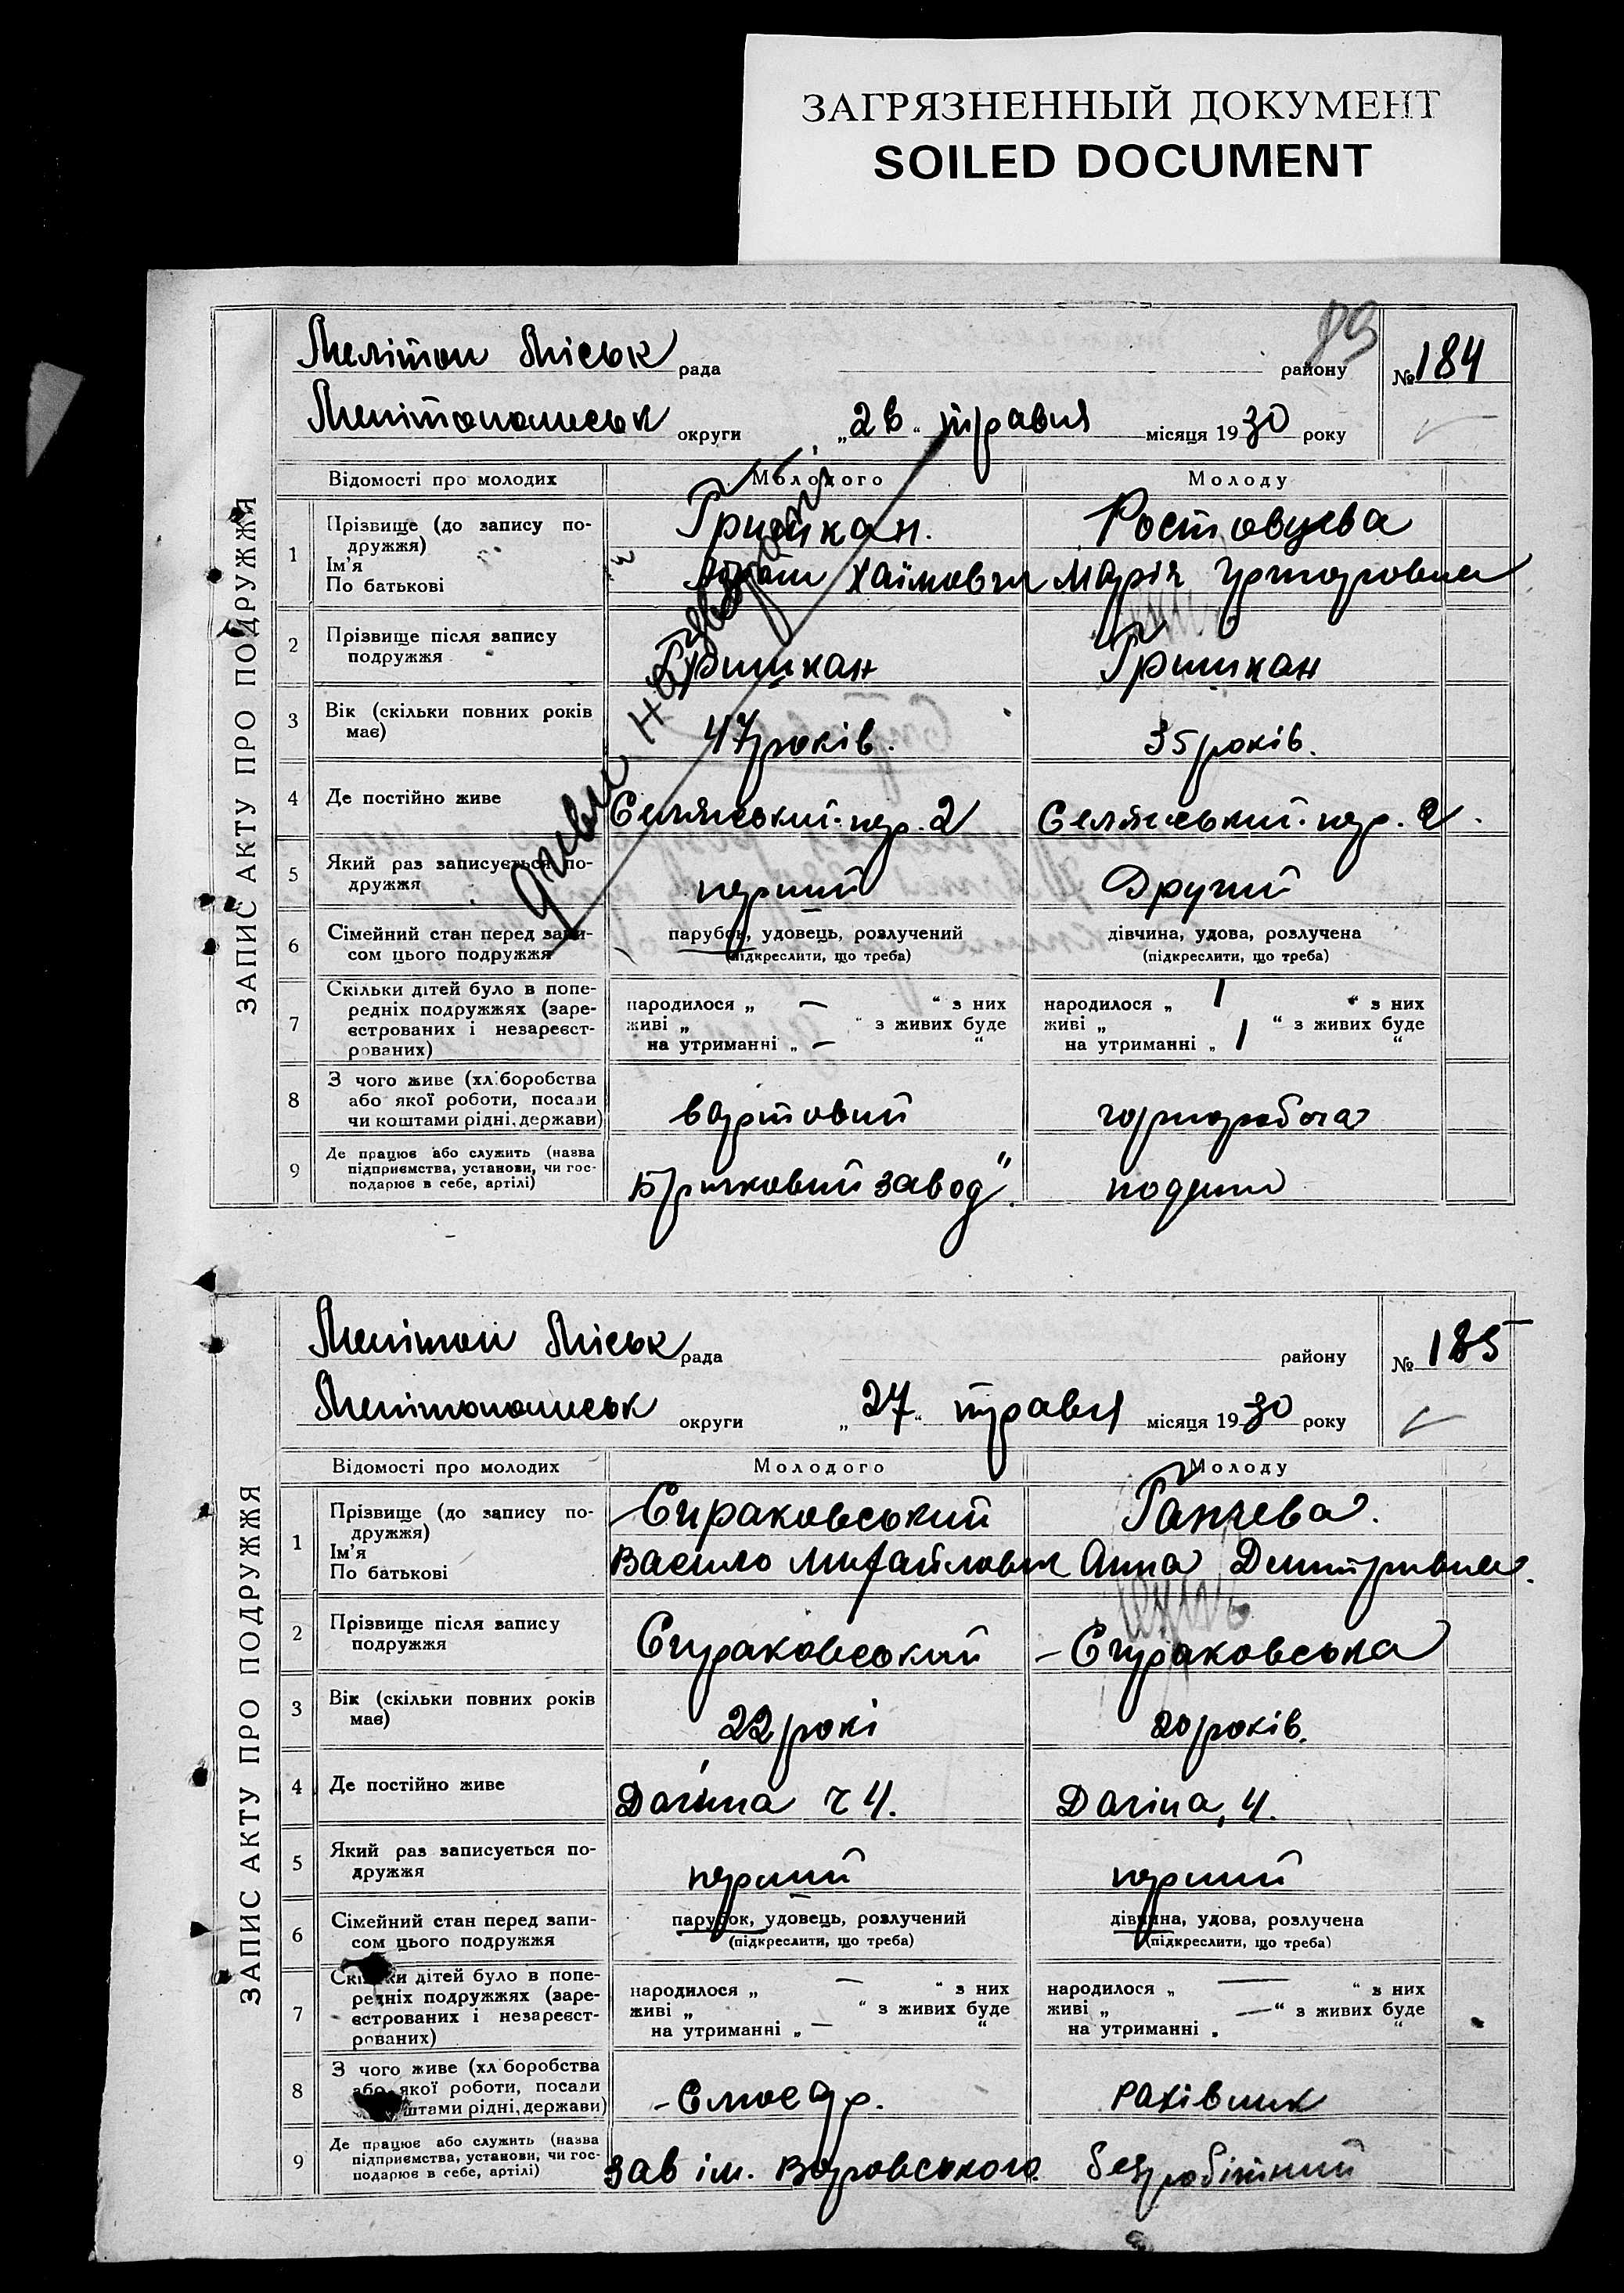 ЗАГРЯЗНЕННЫЙ ДОКУМЕНТ
SOILED DOCUMENT
89
Мелітоп Міськ рада району № 184
Мелітопольськ округи „26“ травня місяця 1930 року
ЗАПИС АКТУ ПРО ПОДРУЖЖЯ
Відомості про молодих Молодого Молоду
1 Прізвище (до запису подружжя) Гришкан. Ростовцева
Ім'я
По батькові Абрам Хаїмович Марія
2 Прізвище після запису подружжя Гришкан Гришкан
3 Вік (скільки повних років має) 47 років. 35 років.
4 Де постійно живе Селянський пер. 2 Селянський пер. 2.
5 Який раз записується подружжя перший Другий
6 Сімейний стан перед записом цього подружжя парубок, удовець, розлучений дівчина, удова, розлучена
(підкреслити, що треба) (підкреслити, що треба)
7 Скільки дітей було в попередніх подружжях (зареєстрованих і незареєстрованих) народилося „ — “ з них народилося „ 1 “ з них
живі „ “ з живих буде живі „ “ з живих буде
на утриманні „ — “ на утриманні „ 1 “
8 З чого живе (хліборобства або якої роботи, посади чи коштами рідні, держави) вартовий чорноробота
9 Де працює або служить (назва підприємства, установи, чи господарює в себе, артілі) завод“. поденно
Мелітоп Міськ рада району № 185
Мелітопольськ округи „27“ травня місяця 1930 року
ЗАПИС АКТУ ПРО ПОДРУЖЖЯ
Відомості про молодих Молодого Молоду
1 Прізвище (до запису подружжя) Сираковський Ганчева.
Ім'я
По батькові Василь Михайлович Анна Дмитрівна.
2 Прізвище після запису подружжя Сираковський Сираковська
3 Вік (скільки повних років має) 22 рокі 20 років.
4 Де постійно живе 4. 4.
5 Який раз записується подружжя перший перший
6 Сімейний стан перед записом цього подружжя парубок, удовець, розлучений дівчина, удова, розлучена
(підкреслити, що треба) (підкреслити, що треба)
7 Скільки дітей було в попередніх подружжях (зареєстрованих і незареєстрованих) народилося „ — “ з них народилося „ — “ з них
живі „ “ з живих буде живі „ — “ з живих буде
на утриманні „ — “ на утриманні „ “
8 З чого живе (хліборобства або якої роботи, посади чи коштами рідні, держави) Слюсар. рахівник
9 Де працює або служить (назва підприємства, установи, чи господарює в себе, артілі) Зав ім. Воровського. безробітний